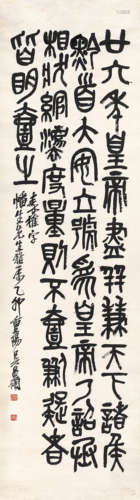 廿六年皇帝盡并兼天下諸侯
黔首大安立號爲皇帝乃詔丞
相狀綰灋度量則不壹歉疑者
皆明壹之
秦權字
先生雅屬乙卯重陽吳昌碩